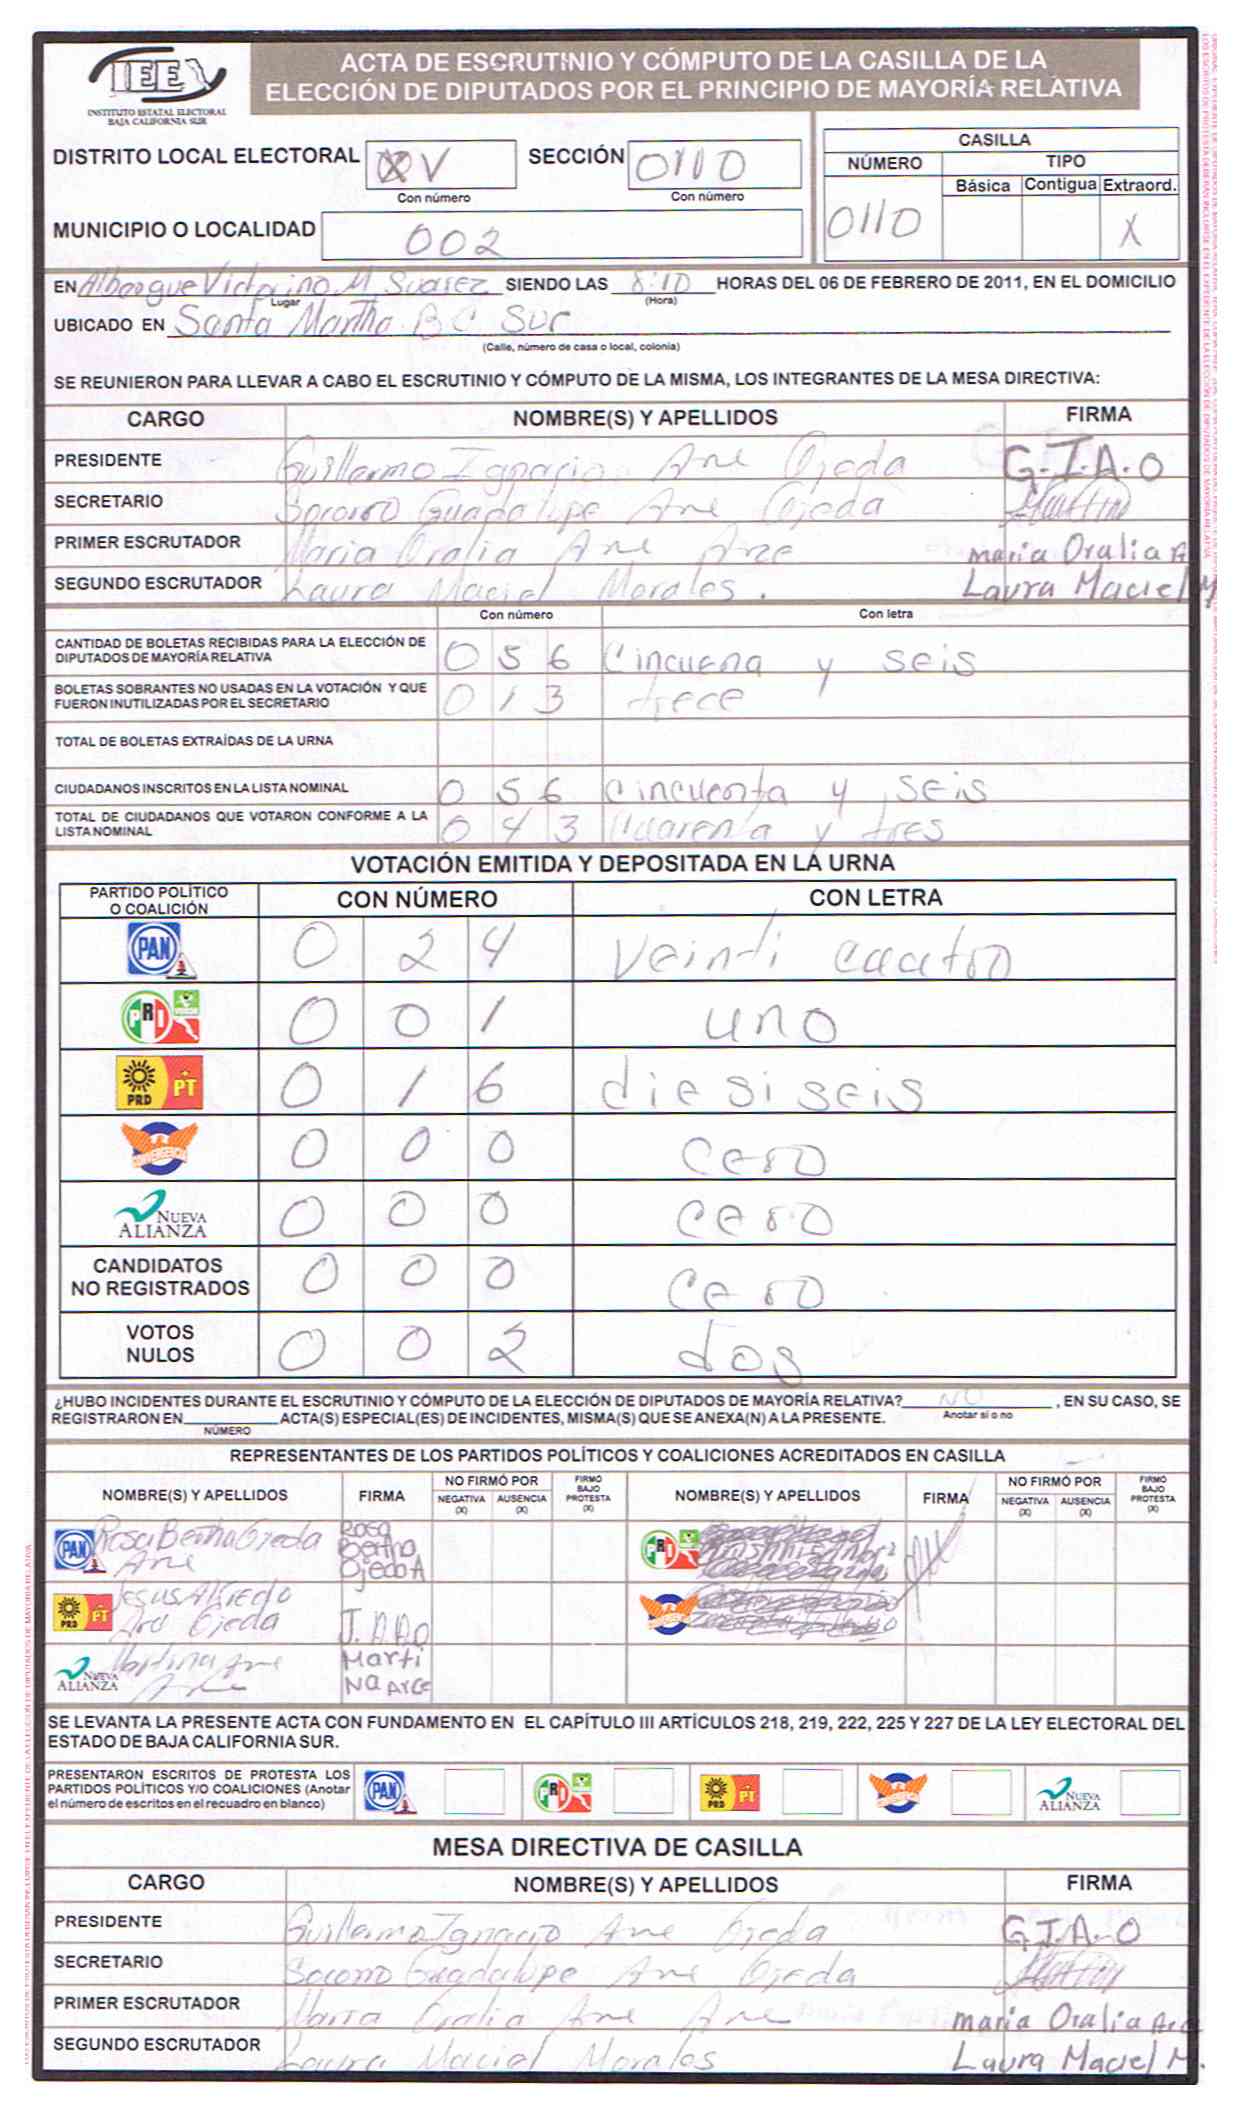 IEE
INSTITUTO ESTATAL ELECTORAL
BAJA CALIFORNIA SUR
ACTA DE ESCRUTINIO Y CÓMPUTO DE LA CASILLA DE LA
ELECCIÓN DE DIPUTADOS POR EL PRINCIPIO DE MAYORÍA RELATIVA
DISTRITO LOCAL ELECTORAL XV SECCIÓN 0110
Con número Con número
MUNICIPIO O LOCALIDAD 002
CASILLA
NÚMERO TIPO
Básica Contigua Extraord.
0110 X
EN Albergue Victorino M Suarez SIENDO LAS 8:10 HORAS DEL 06 DE FEBRERO DE 2011, EN EL DOMICILIO
Lugar (Hora)
UBICADO EN Santa Martha B C Sur
(Calle, número de casa o local, colonia)
SE REUNIERON PARA LLEVAR A CABO EL ESCRUTINIO Y CÓMPUTO DE LA MISMA, LOS INTEGRANTES DE LA MESA DIRECTIVA:
CARGO NOMBRE(S) Y APELLIDOS FIRMA
PRESIDENTE Guillermo Ignacio Ojeda G.I.A.O
SECRETARIO Socorro Guadalupe Ojeda
PRIMER ESCRUTADOR Maria Oralia maria Oralia A
SEGUNDO ESCRUTADOR Laura Maciel Morales. Laura Maciel M.
Con número Con letra
CANTIDAD DE BOLETAS RECIBIDAS PARA LA ELECCIÓN DE
DIPUTADOS DE MAYORÍA RELATIVA 0 5 6 Cincuena y seis
BOLETAS SOBRANTES NO USADAS EN LA VOTACIÓN Y QUE
FUERON INUTILIZADAS POR EL SECRETARIO 0 1 3 trece
TOTAL DE BOLETAS EXTRAÍDAS DE LA URNA
CIUDADANOS INSCRITOS EN LA LISTA NOMINAL 0 5 6 Cincuenta y seis
TOTAL DE CIUDADANOS QUE VOTARON CONFORME A LA
LISTA NOMINAL 0 4 3 Cuarenta y tres
VOTACIÓN EMITIDA Y DEPOSITADA EN LA URNA
PARTIDO POLÍTICO
O COALICIÓN CON NÚMERO CON LETRA
PAN 0 2 4 Veinti cuatro
PRI 0 0 1 uno
PRD PT 0 1 6 diesiseis
CONVERGENCIA 0 0 0 cero
NUEVA
ALIANZA 0 0 0 cero
CANDIDATOS
NO REGISTRADOS 0 0 0 cero
VOTOS
NULOS 0 0 2 dos
¿HUBO INCIDENTES DURANTE EL ESCRUTINIO Y CÓMPUTO DE LA ELECCIÓN DE DIPUTADOS DE MAYORÍA RELATIVA? NO , EN SU CASO, SE
REGISTRARON EN ACTA(S) ESPECIAL(ES) DE INCIDENTES, MISMA(S) QUE SE ANEXA(N) A LA PRESENTE. Anotar sí o no
NÚMERO
REPRESENTANTES DE LOS PARTIDOS POLÍTICOS Y COALICIONES ACREDITADOS EN CASILLA
NOMBRE(S) Y APELLIDOS FIRMA NO FIRMÓ POR NEGATIVA (X) AUSENCIA (X) FIRMÓ BAJO PROTESTA (X) NOMBRE(S) Y APELLIDOS FIRMA NO FIRMÓ POR NEGATIVA (X) AUSENCIA (X) FIRMÓ BAJO PROTESTA (X)
PAN Rosa Bertha Ojeda Rosa Bertha Ojeda A PRI
PRD PT Jesus Alfredo Ojeda J.A.A.O CONVERGENCIA
NUEVA ALIANZA Martina Martina Arce
SE LEVANTA LA PRESENTE ACTA CON FUNDAMENTO EN EL CAPÍTULO III ARTÍCULOS 218, 219, 222, 225 Y 227 DE LA LEY ELECTORAL DEL
ESTADO DE BAJA CALIFORNIA SUR.
PRESENTARON ESCRITOS DE PROTESTA LOS
PARTIDOS POLÍTICOS Y/O COALICIONES (Anotar
el número de escritos en el recuadro en blanco) PAN PRI PRD PT CONVERGENCIA NUEVA ALIANZA
MESA DIRECTIVA DE CASILLA
CARGO NOMBRE(S) Y APELLIDOS FIRMA
PRESIDENTE Guillermo Ignacio Ojeda G.I.A.O
SECRETARIO Socorro Guadalupe Ojeda
PRIMER ESCRUTADOR Maria Oralia maria Oralia
SEGUNDO ESCRUTADOR Laura Maciel Morales Laura Maciel M.